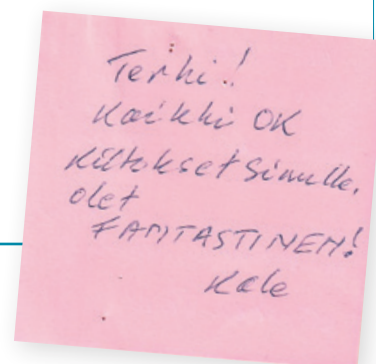 Terhi!
Kaikki OK
Kiitokset Sinulle.
olet
FANTASTINEN!
Kale